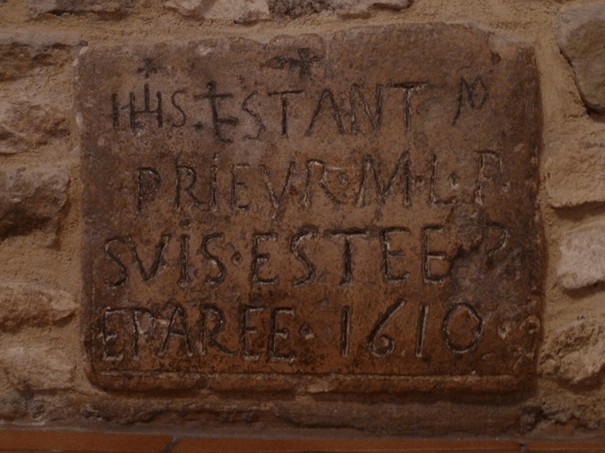 IHS ESTANT Mº
PRIEVR·M·L·P·
SVIS·ESTEE R
EPAREE·1610